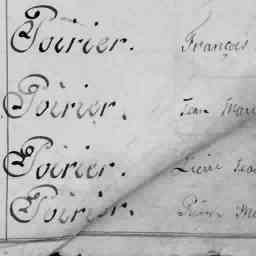 Poirier. François
Poirier. Jean Mari
Poirier. Pierre Jean
Poirier.